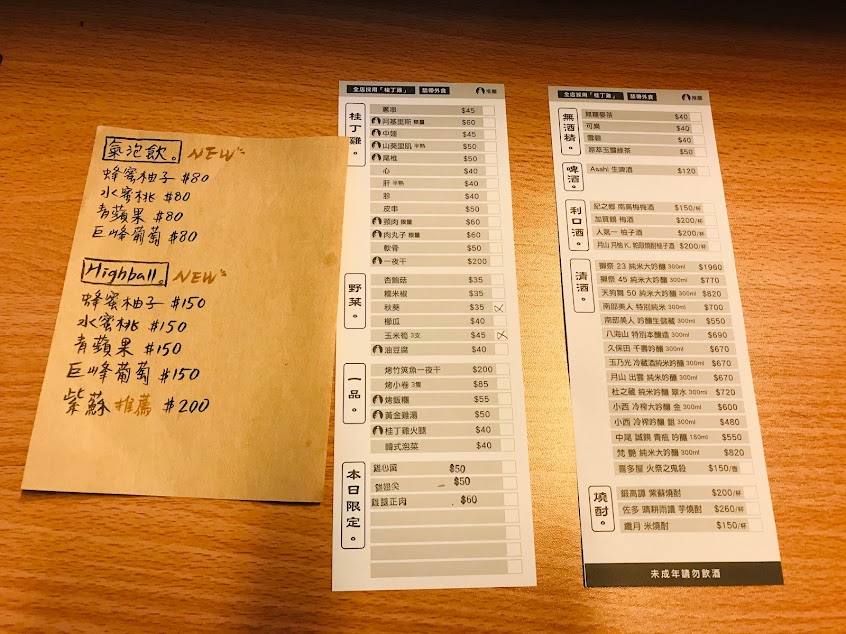 氣泡飲。 NEW
蜂蜜柚子 $80
水蜜桃 $80
青蘋果 $80
巨峰葡萄 $80
Highball。 NEW
蜂蜜柚子 $150
水蜜桃 $150
青蘋果 $150
巨峰葡萄 $150
紫蘇 推薦 $200
全店採用「桂丁雞」 禁帶外食 推薦
桂丁雞。
蔥串 $45
阿基里斯 限量 $60
中翅 $45
山葵里肌 半熟 $50
尾椎 $50
心 $40
肝 半熟 $40
胗 $40
皮串 $50
頸肉 限量 $60
肉丸子 限量 $60
軟骨 $50
一夜干 $200
野菜。
杏鮑菇 $35
糯米椒 $35
秋葵 $35
櫛瓜 $40
玉米筍 3支 $45
油豆腐 $40
一品。
烤竹筴魚一夜干 $200
烤小卷 3隻 $85
烤飯糰 $55
黃金雞湯 $50
桂丁雞火腿 $40
韓式泡菜 $40
本日限定。
雞心頭 $50
雞翅尖 $50
雞腿正肉 $60
全店採用「桂丁雞」 禁帶外食 推薦
無酒精。
無糖麥茶 $40
可樂 $40
雪碧 $40
原萃玉露綠茶 $50
啤酒。
Asahi 生啤酒 $120
利口酒。
紀之鄉 南高梅梅酒 $150/杯
加賀鶴 梅酒 $200/杯
人氣一 柚子酒 $200/杯
月山 月柚 K. 粕取燒酎柚子酒 $200/杯
清酒。
獺祭 23 純米大吟釀 300ml $1960
獺祭 45 純米大吟釀 300ml $770
天狗舞 50 純米大吟釀 300ml $820
南部美人 特別純米 300ml $700
南部美人 吟釀生儲藏 300ml $550
八海山 特別本釀造 300ml $690
久保田 千壽吟釀 300ml $670
玉乃光 冷藏酒純米吟釀 300ml $670
月山 出雲 純米吟釀 300ml $670
杜之藏 純米吟釀 翠水 300ml $720
小西 冷榨吟釀 金 300ml $600
小西 冷榨吟釀 銀 300ml $480
中尾 誠鏡 青瓶 吟釀 180ml $550
梵 艷 純米大吟釀 300ml $820
喜多屋 火祭之鬼殺 $150/壺
燒酎。
鍛高譚 紫蘇燒酎 $200/杯
佐多 晴耕雨讀 芋燒酎 $260/杯
鐵月 米燒酎 $150/杯
未成年請勿飲酒